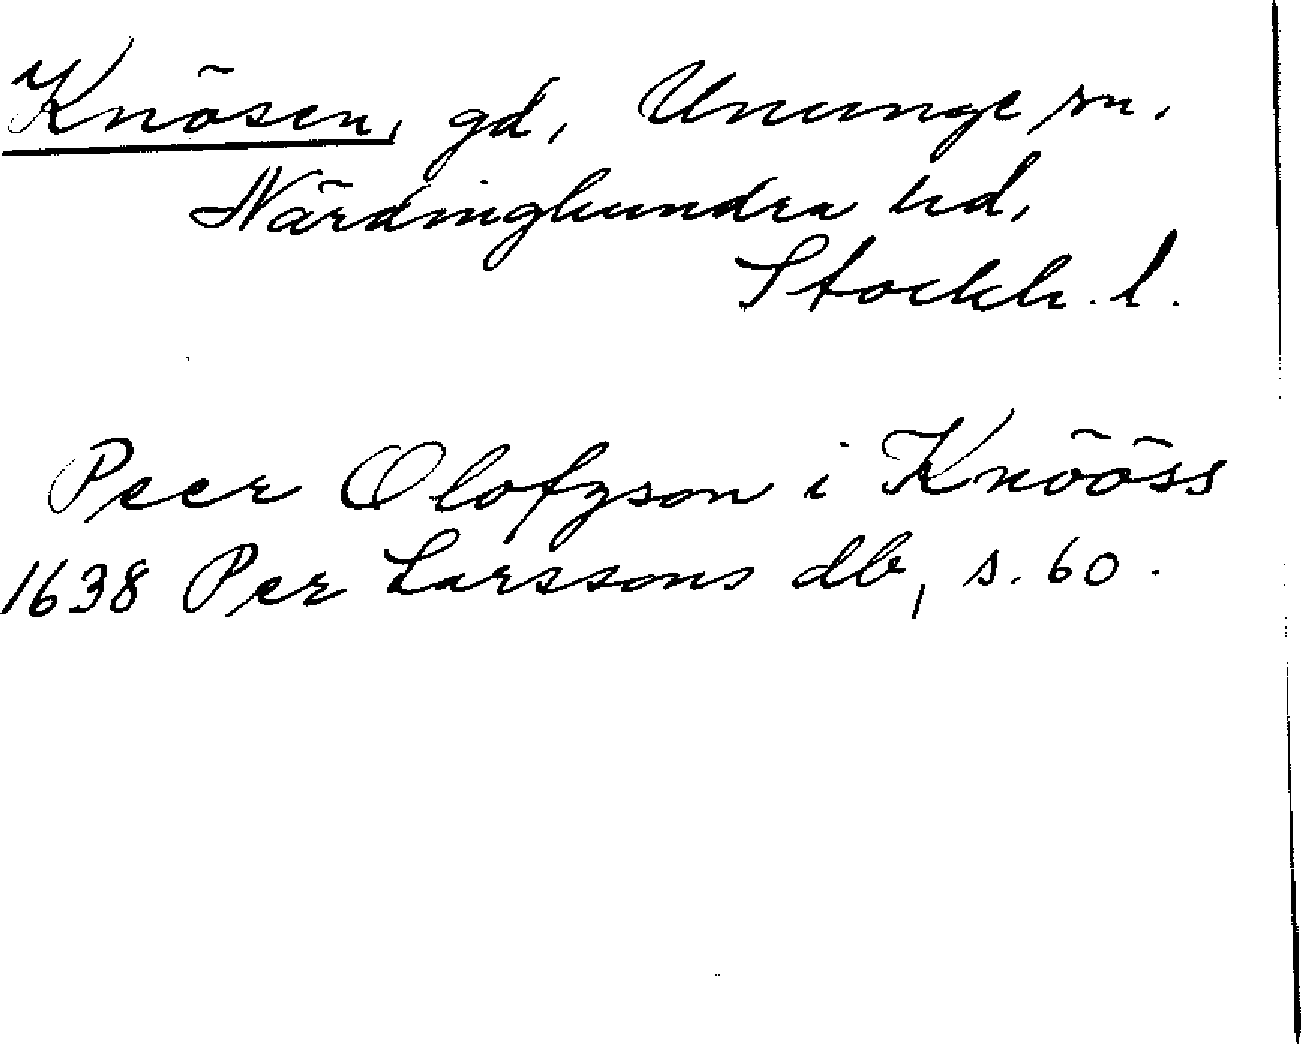 Knösen, gd, Ununge sn.
Närdinghundra hd,
Stockh. l.
Peer Olofzson i Knööss
1638 Per Larssons db, s. 60.